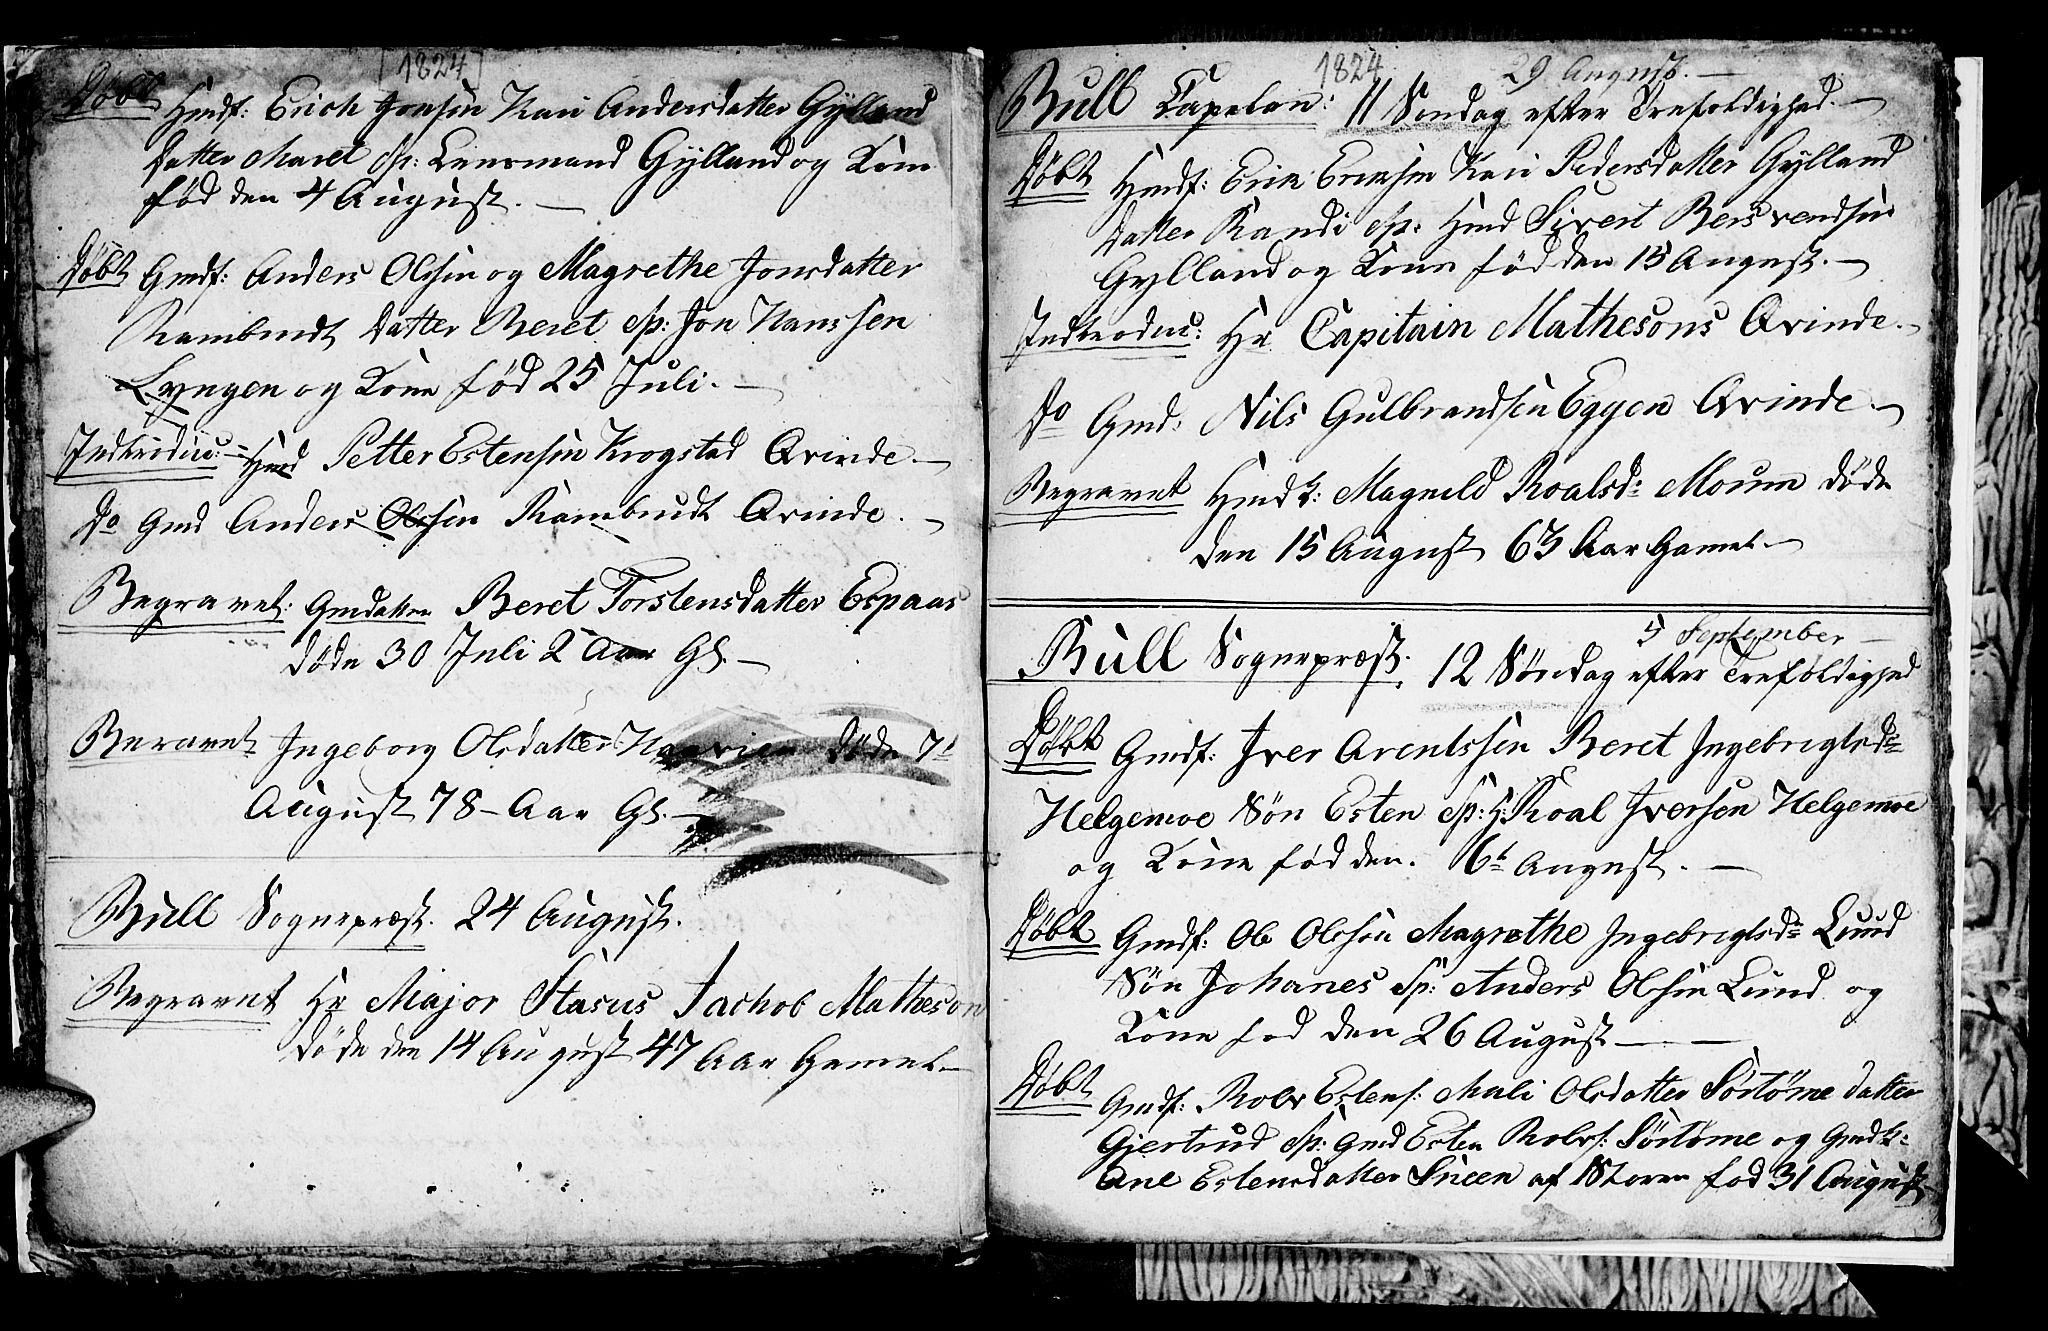 [1824]
Døbt Hmdf: Erich Jonsen Kari Andersdatter Gylland
Datter Maret Sp: Lensmand Gylland og Kone
fød den 4 August. —
Døbt Gmdf: Anders Olssen og Magrethe Jonsdatter
Rambredt Datter Beret Sp: Jon Hanssen
Lyngen og Kone fød 25 Juli. —
Indtroduc: Hmd Petter Estensen Krogstad Qvinde. —
Do Gmd Anders Olssen Rambredt Qvinde. —
Begravet: Gmdatter Beret Torstensdatter Espaas
døde 30 Juli 2 Aar Gl. —
Beravet Ingeborg Olsdatter døde 7t
August 78 – Aar Gl. —
Bull Sognepræst. 24 August.
Begravet Hr Major Stasus Jachob Matheson
døde den 14 August 47 Aar Gamel —
1824 29 August. —
Bull Capelan: 11 Søndag efter Trefoldighed. —
Døbt Hmdf: Erik Eriksen Kari Pedersdatter Gylland
Datter Randi Sp: Hmd Sivert Bersvendsen
Gylland og Kone fød den 15 August. —
Indtroduc: Hr Capitain Mathesons Qvinde. —
Do Gmd: Nils Gulbrandsen Eggen Qvinde. —
Begravet Hmdk: Magnild Roalsd: Moum døde
den 15 August 63 Aar Gamel —
5 September —
Bull Sognepræst. 12 Søndag efter Trefoldighed
Døbt Gmdf: Iver Arentssen Beret Ingebrigtsd:
Helgemoe Søn Esten Sp: H: Roal Iversen Helgemoe
og Kone fød den. 6t August. —
Døbt Gmdf: Ole Olssen Magrethe Ingebrigtsd: Lund
Søn Johanes Sp: Anders Olssen Lund og
Kone fød den 26 August — —
Døbt Gmdf: Rolv Estens: Mali Olsdatter Sørtømme Datter
Gjertrud Sp: Gmd Esten Rolvs: Sørtømme og Gmdk:
Ane Estensdatter Sneen af Støren fød 31 August